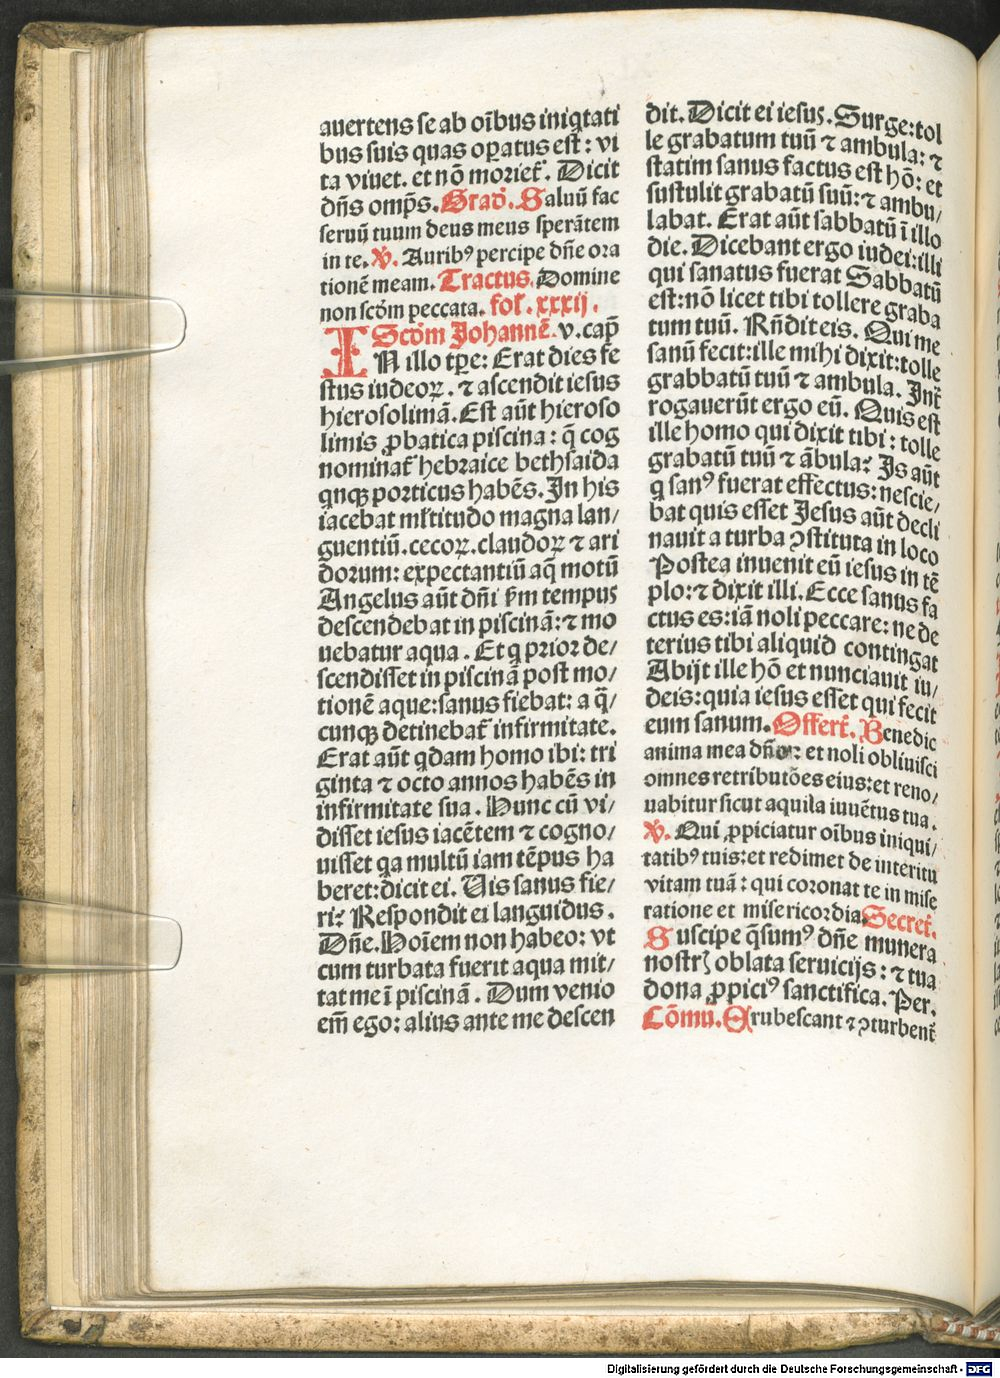 auertens se ab oĩbus iniq̃tati
bus suis quas oꝑatus est: vi
ta viuet. et nõ morieť. Dicit
dñs omp̃s. Grad̃. Saluũ fac
seruũ tuum deus meus sperãtem
in te. ꝟ. Auribꝰ percipe dñe ora
tionẽ meam. Tractus. Domine
non scďm peccata. fol. xxxij.
Scďm Johannẽ. v. cap̃
IN illo tꝑe: Erat dies fe
stus iudeoꝝ. ⁊ ascendit iesus
hierosolimã. Est aũt hieroso
limis ꝓbatica piscina: q̃ cog
nominať hebraice bethsaida
qnqꝫ porticus habẽs. In his
iacebat mľtitudo magna lan/
guentiũ. cecoꝝ. claudoꝝ ⁊ ari
dorum: expectantiũ aq̃ motũ
Angelus aũt dñi ẜm tempus
descendebat in piscinã: ⁊ mo
uebatur aqua. Et q prior de/
scendisset in piscinã post mo/
tionẽ aque: sanus fiebat: a q̃/
cunqꝫ detinebať infirmitate.
Erat aũt qdam homo ibi: tri
ginta ⁊ octo annos habẽs in
infirmitate sua. Hunc cũ vi/
disset iesus iacẽtem ⁊ cogno/
uisset qa multũ iam tẽpus ha
beret: dicit ei. Uis sanus fie/
ri? Respondit ei languidus.
Dñe. Hoĩem non habeo: vt
cum turbata fuerit aqua mit/
tat me ĩ piscinã. Dum venio
em̃ ego: alius ante me descen
dit. Dicit ei iesus. Surge: tol
le grabatum tuũ ⁊ ambula: ⁊
statim sanus factus est hõ: et
sustulit grabatũ suũ: ⁊ ambu/
labat. Erat aũt sabbatũ ĩ illo
die. Dicebant ergo iudei: illi
qui sanatus fuerat Sabbatũ
est: nõ licet tibi tollere graba
tum tuũ. Rñdit eis. Qui me
sanũ fecit: ille mihi dixit: tolle
grabbatũ tuũ ⁊ ambula. Inť
rogauerũt ergo eũ. Quis est
ille homo qui dixit tibi: tolle
grabatũ tuũ ⁊ ãbula? Is aũt
q sanꝰ fuerat effectus: nescie/
bat quis esset Jesus aũt decli
nauit a turba ꝯstituta in loco
Postea inuenit eũ iesus in tẽ
plo: ⁊ dixit illi. Ecce sanus fa
ctus es: iã noli peccare: ne de
terius tibi aliquid contingat
Abijt ille hõ et nunciauit iu/
deis: quia iesus esset qui fecit
eum sanum. Offerť. Benedic
anima mea dño: et noli obliuisci
omnes retributões eius: et reno/
uabitur sicut aquila iuuẽtus tua.
ꝟ. Qui ꝓpiciatur oĩbus iniqui/
tatibꝰ tuis: et redimet de interitu
vitam tuã: qui coronat te in mise
ratione et misericordia. Secreť.
Suscipe q̃sumꝰ dñe munera
nostrꝭ oblata seruicijs: ⁊ tua
dona ꝓpiciꝰ sanctifica. Per.
Cõmũ. Erubescant ⁊ ꝯturbenť
Digitalisierung gefördert durch die Deutsche Forschungsgemeinschaft - DFG